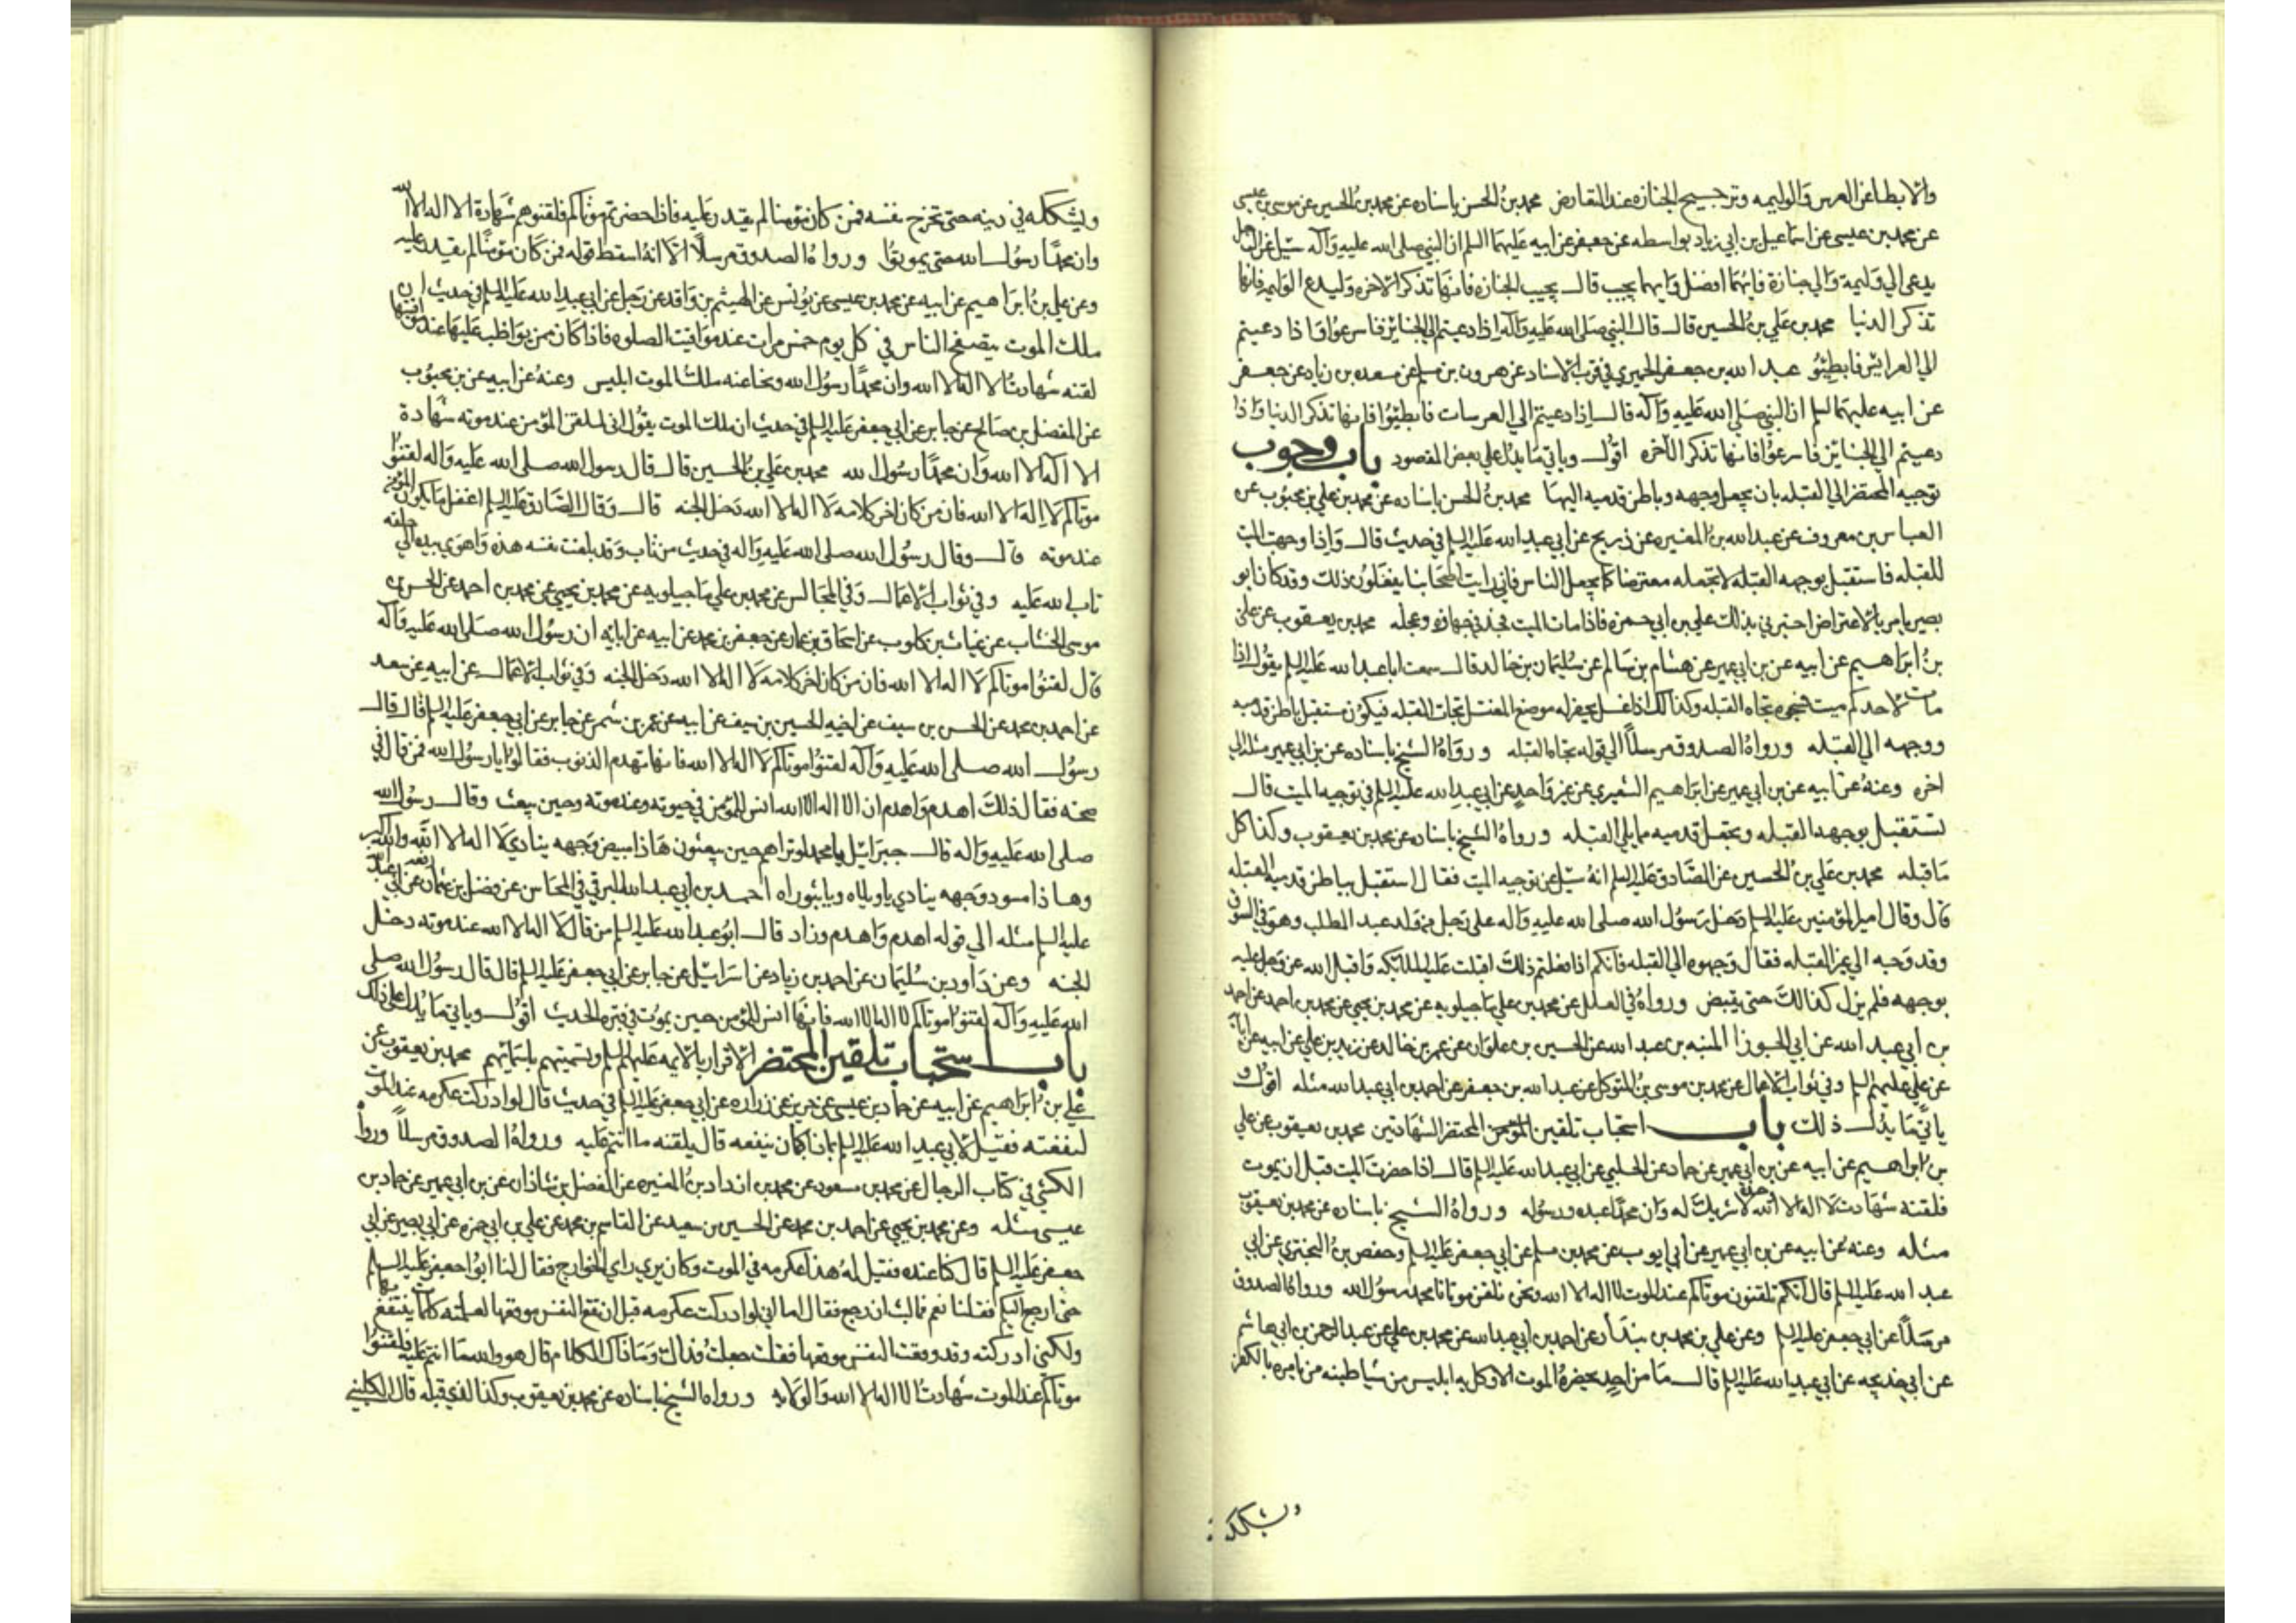 والابطا عن العرس والوليمه وترجيح الجنازه عند التعارض محمد بن الحسن باسناده عن محمد بن الحسين عن موسى بن عيسى
عن محمد بن عيسى عن اسماعيل بن ابي زياد بواسطه عن جعفر عن ابيه عليهما السلم ان النبي صلى الله عليه وآله سئل عن الرجل
يدعى الي وليمة والي جنازة فايهما افضل وايهما يجيب قال يجيب الجنازه فانها تذكر الآخره وليدع الوليمه فانها
تذكر الدنيا محمد بن علي بن الحسين قال قال النبي صلى الله عليه وآله اذا دعيتم الي الجنائز فاسرعوا واذا دعيتم
الي العرائس فابطئو عبد الله بن جعفر الحميري في قرب الاسناد عن هرون بن مسلم عن مسعده بن زياد عن جعفر
عن ابيه عليهما السلم ان النبي صلى الله عليه وآله قال اذا دعيتم الي العرسات فابطئوا فانها تذكر الدنيا واذا
دعيتم الي الجنائز فاسرعوا فانها تذكر الآخره اقول وياتي ما يدل علي بعض المقصود باب وجوب
توجيه المحتضر الي القبله بان يجعل وجهه وباطن قدميه اليها محمد بن الحسن باسناده عن محمد بن علي بن محبوب عن
العباس بن معروف عن عبد الله بن المغيره عن ذريح عن ابي عبد الله عليه السلم في حديث قال واذا وجهت الميت
للقبله فاستقبل بوجهه القبله لا تجعله معترضا كما يجعل الناس فاني رايت اصحابنا يفعلون ذلك وقد كان ابو
بصير يامر بالاعتراض اخبرني بذلك علي بن ابي حمزه فاذا مات الميت فخذ في جهازه وعجله محمد بن يعقوب عن علي
بن ابراهيم عن ابيه عن بن ابي عمير عن هشام بن سالم عن سليمان بن خالد قال سمعت ابا عبد الله عليه السلم يقول اذا
مات لاحدكم ميت فسجوه تجاه القبله وكذلك اذا غسل يحفر له موضع المغتسل تجاه القبله فيكون مستقبل باطن قدميه
ووجهه الي القبله ورواه الصدوق مرسلاً الي قوله تجاه القبله ورواه الشيخ باسناده عن بن ابي عمير مثله الي
اخره وعنه عن ابيه عن بن ابي عمير عن ابراهيم الشعيري عن غير واحد عن ابي عبد الله عليه السلم في توجيه الميت قال
تستقبل بوجهه القبله وتجعل قدميه مما يلي القبله ورواه الشيخ باسناده عن محمد بن يعقوب وكذا كل
ما قبله محمد بن علي بن الحسين عن الصادق عليه السلم انه سئل عن توجيه الميت فقال استقبل بباطن قدميه القبله
قال وقال امير المومنين عليه السلم دخل رسول الله صلى الله عليه وآله على رجل من ولد عبد المطلب وهو في السوق
وقد وجه الي غير القبله فقال وجهوه الي القبله فانكم اذا فعلتم ذلك اقبلت عليه الملائكه واقبل الله عز وجل عليه
بوجهه فلم يزل كذلك حتى يقبض ورواه في العلل عن محمد بن علي ماجيلويه عن محمد بن يحيي عن محمد بن احمد عن احمد
بن ابي عبد الله عن ابي الجوزا المنبه بن عبد الله عن الحسين بن علوان عن عمر بن خالد عن زيد بن علي عن ابيه عن ابائه
عن علي عليهم السلم وفي ثواب الاعمال عن محمد بن موسى بن المتوكل عن عبد الله بن جعفر عن احمد بن ابي عبد الله مثله اقول و
ياتي ما يدل ذلك باب استحباب تلقين المؤمن المحتضر الشهادتين محمد بن يعقوب عن علي
بن ابراهيم عن ابيه عن بن ابي عمير عن حماد عن الحلبي عن ابي عبد الله عليه السلم قال اذا حضرت الميت قبل ان يموت
فلقنه شهادت لا اله الا الله وحده لا شريك له وان محمدا عبده ورسوله ورواه الشيخ باسناده عن محمد بن يعقوب
مثله وعنه عن ابيه عن بن ابي عمير عن ابي ايوب عن محمد بن مسلم عن ابي جعفر عليه السلم وحفص بن البختري عن ابي
عبد الله عليه السلم قال انكم تلقنون موتاكم عند الموت لا اله الا الله ونحن نلقن موتانا محمد رسول الله ورواه الصدوق
مرسلاً عن ابي جعفر عليه السلم وعن علي بن محمد بن بندار عن احمد بن ابي عبد الله عن محمد بن علي عن عبد الرحمن بن ابي هاشم
عن ابي خديجه عن ابي عبد الله عليه السلم قال ما من احد يحضره الموت الا وكل به ابليس من شياطينه من يامره بالكفر
ويشككه
ويشككه في دينه حتى تخرج نفسه فمن كان مؤمنا لم يقدر عليه فاذا حضرتم موتاكم فلقنوهم شهادة الا اله الا الله
وان محمدًا رسول الله حتى يموتوا ورواه الصدوق مرسلاً الا انه اسقط قوله فمن كان مؤمنًا لم يقدر عليه
وعن علي بن ابراهيم عن ابيه عن محمد بن عيسى عن يونس عن الهيثم بن واقد عن رجل عن ابي عبد الله عليه السلم في حديث ان
ملك الموت يتصفح الناس في كل يوم خمس مرات عند مواقيت الصلوه فاذا كان ممن يواظب عليها عند مواقيتها
لقنه شهادت لا اله الا الله وان محمدًا رسول الله ونحا عنه ملك الموت ابليس وعنه عن ابيه عن بن محبوب
عن المفضل بن صالح عن جابر عن ابي جعفر عليه السلم في حديث ان ملك الموت يقول اني لملقن المؤمن عند موته شهادة
الا اله الا الله وان محمدًا رسول الله محمد بن علي بن الحسين قال قال رسول الله صلى الله عليه واله لقنوا
موتاكم لا اله الا الله فان من كان اخر كلامه لا اله الا الله دخل الجنه قال وقال الصادق عليه السلم اغفل ما يكون المؤمن
عند موته قال وقال رسول الله صلى الله عليه واله في حديث من تاب وقد بلغت نفسه هذه واهوى بيده الي حلقه
تاب الله عليه وفي ثواب الاعمال وفي المجالس عن محمد بن علي ماجيلويه عن محمد بن يحيي عن محمد بن احمد عن الحسن بن
موسى الخشاب عن غياث بن كلوب عن اسحاق بن عمار عن جعفر بن محمد عن ابيه عن ابائه ان رسول الله صلى الله عليه وآله
قال لقنوا موتاكم لا اله الا الله فان من كان اخر كلامه لا اله الا الله دخل الجنه وفي ثواب الاعمال عن ابيه عن سعد
عن احمد بن محمد عن الحسن بن سيف عن اخيه الحسين بن سيف عن ابيه عن عمر بن شمر عن جابر عن ابي جعفر عليه السلم قال قال
رسول الله صلى الله عليه وآله لقنوا موتاكم لا اله الا الله فانها تهدم الذنوب فقالوا يا رسول الله فمن قال في
صحته فقال ذلك اهدم واهدم ان لا اله الا الله انس للمؤمن في حيوته وعند موته وحين يبعث وقال رسول الله
صلى الله عليه واله قال جبرائيل يا محمد لو تراهم حين يبعثون هذا مبيض وجهه ينادي لا اله الا الله والله اكبر
وهذا مسود وجهه ينادي يا ويلاه ويا ثبوراه احمد بن ابي عبد الله البرقي في المحاسن عن فضل بن عثمان رفعه عن ابي عبد الله
عليه السلم مثله الي قوله اهدم واهدم وزاد قال ابو عبد الله عليه السلم من قال لا اله الا الله عند موته دخل
الجنه وعن داود بن سليمان عن احمد بن زياد عن اسرائيل عن جابر عن ابي جعفر عليه السلم قال قال رسول الله صلى
الله عليه وآله لقنوا موتاكم لا اله الا الله فانها انس للمؤمن حين يموت الحديث اقول وياتي ما يدل على ذلك
باب استحباب تلقين المحتضر الاقرار بالائمه عليهم السلم وتسميتهم باسمائهم محمد بن يعقوب عن
علي بن ابراهيم عن ابيه عن حماد بن عيسى عن حريز عن زراره عن ابي جعفر عليه السلم في حديث قال لو ادركت عكرمه عند الموت
لنفعته فقيل لابي عبد الله عليه السلم بماذا كان ينفعه قال يلقنه ما انتم عليه ورواه الصدوق مرسلاً ورواه
الكشي في كتاب الرجال عن محمد بن مسعود عن محمد بن ازداد بن المغيره عن الفضل بن شاذان عن بن ابي عمير عن حماد بن
عيسى مثله وعن محمد بن يحيي عن احمد بن محمد عن الحسين بن سعيد عن القاسم بن محمد عن علي بن ابي حمزه عن ابي بصير عن ابي
جعفر عليه السلم قال كنا عنده فقيل له هذا عكرمه في الموت وكان يري راي الخوارج فقال لنا ابو جعفر عليه السلم
حتى ارجع اليكم فقلنا نعم فما لبث ان رجع فقال اما اني لو ادركت عكرمه قبل ان تقع النفس موقعها لعلمته كلمات ينتفع بها
ولكني ادركته وقد وقعت النفس موقعها فقلت جعلت فداك وما ذاك الكلام قال هو والله ما انتم عليه فلقنوا
موتاكم عند الموت شهادت لا اله الا الله والولايه ورواه الشيخ باسناده عن محمد بن يعقوب وكذا الذي قبله قال الكليني